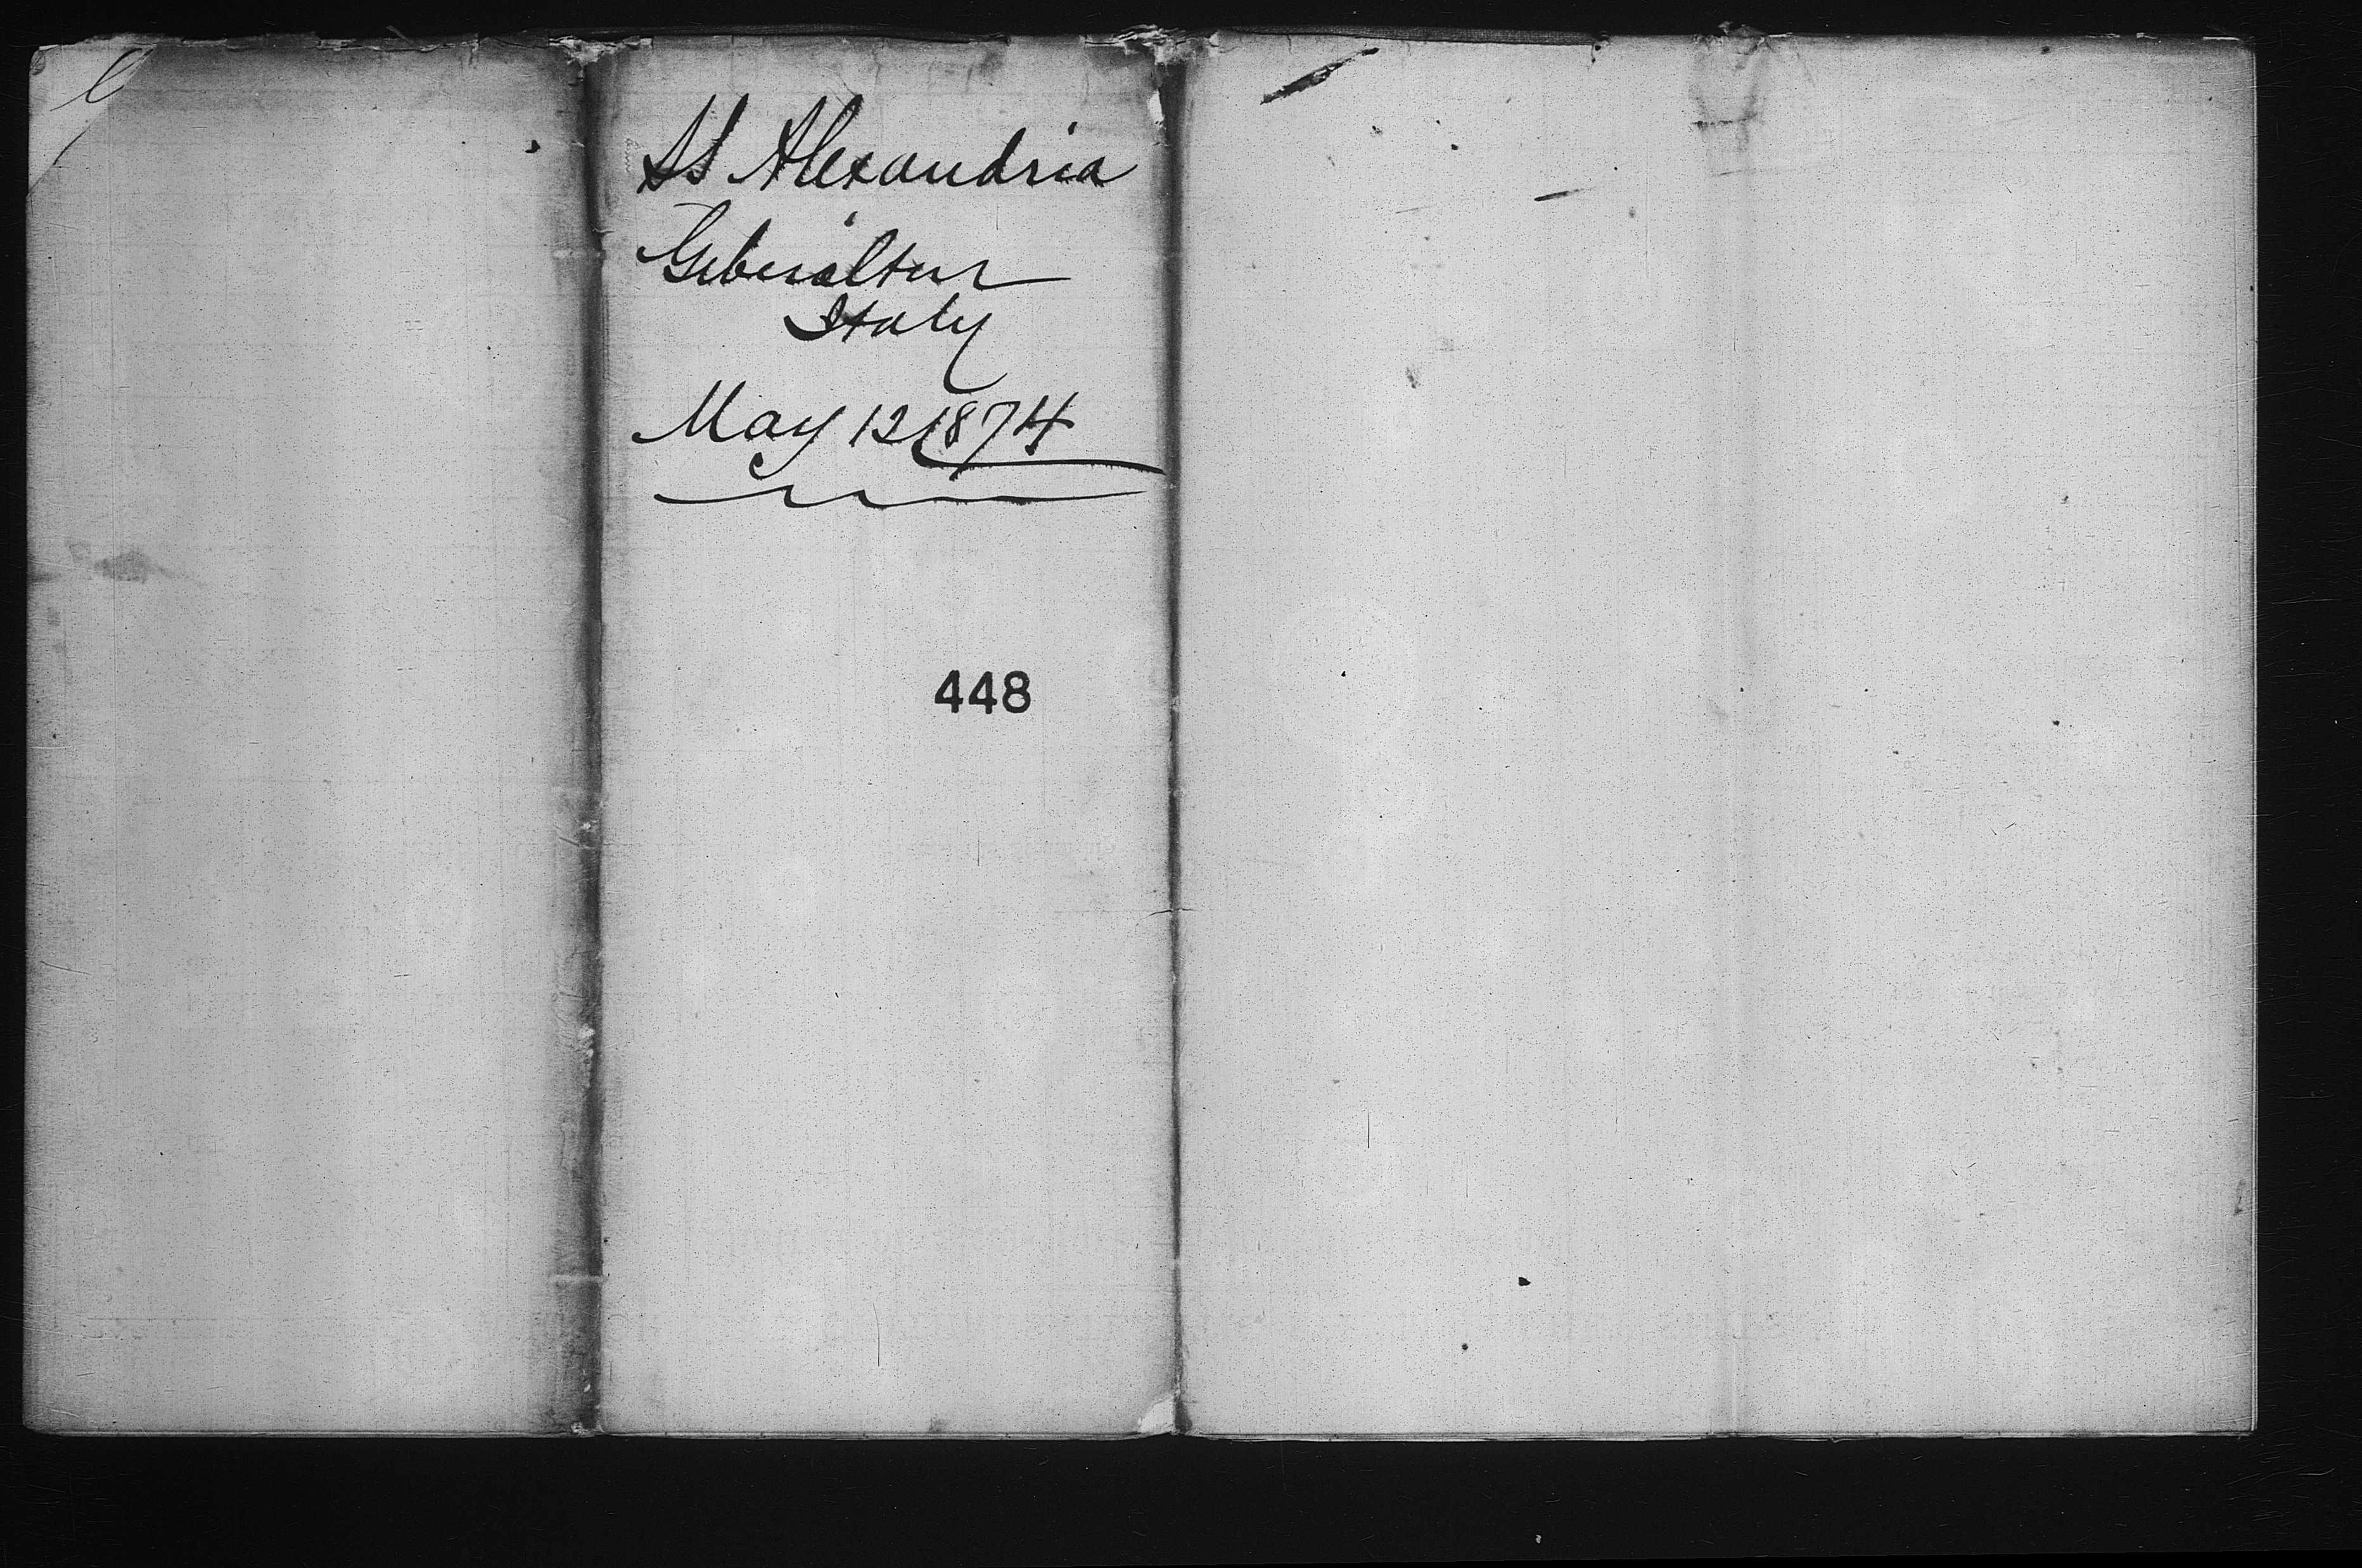 SS Alexandria
Giberaltur
Italy
May 12 1874
448